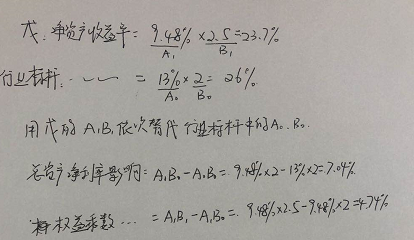 戊:净资产收益率= 9.48% ×2.5=23.7%
A₁ B₁
行业标杆:〃 〃 = 13% × 2 = 26%
A₀ B₀
用戊的A₁B₁依次替代行业标杆中的A₀.B₀.
总资产净利率影响:A₁B₀-A₀B₀=9.48%×2-13%×2=7.04%
权益乘数… =A₁B₁-A₁B₀=9.48%×2.5-9.48%×2=4.74%